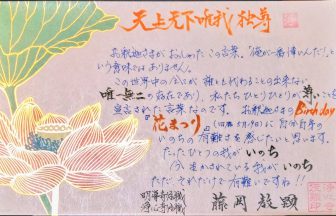 天上天下唯我独尊
お釈迦さまがおっしゃったこの言葉。「俺が一番偉いんだ!」と
いう意味ではありません。
この世界中の全てが 誰とも代わることの出来ない
唯一無二の存在であり、私たちひとりひとりが尊い
生まれた言葉なのです。お釈迦さまのBirthday
『花まつり』(4月8日)に
いのちの有難さを感じたいと思います。
たったひとつの我がいのち
今、生かされている我がいのち
ただ、それだけで有難いですね!!
藤岡